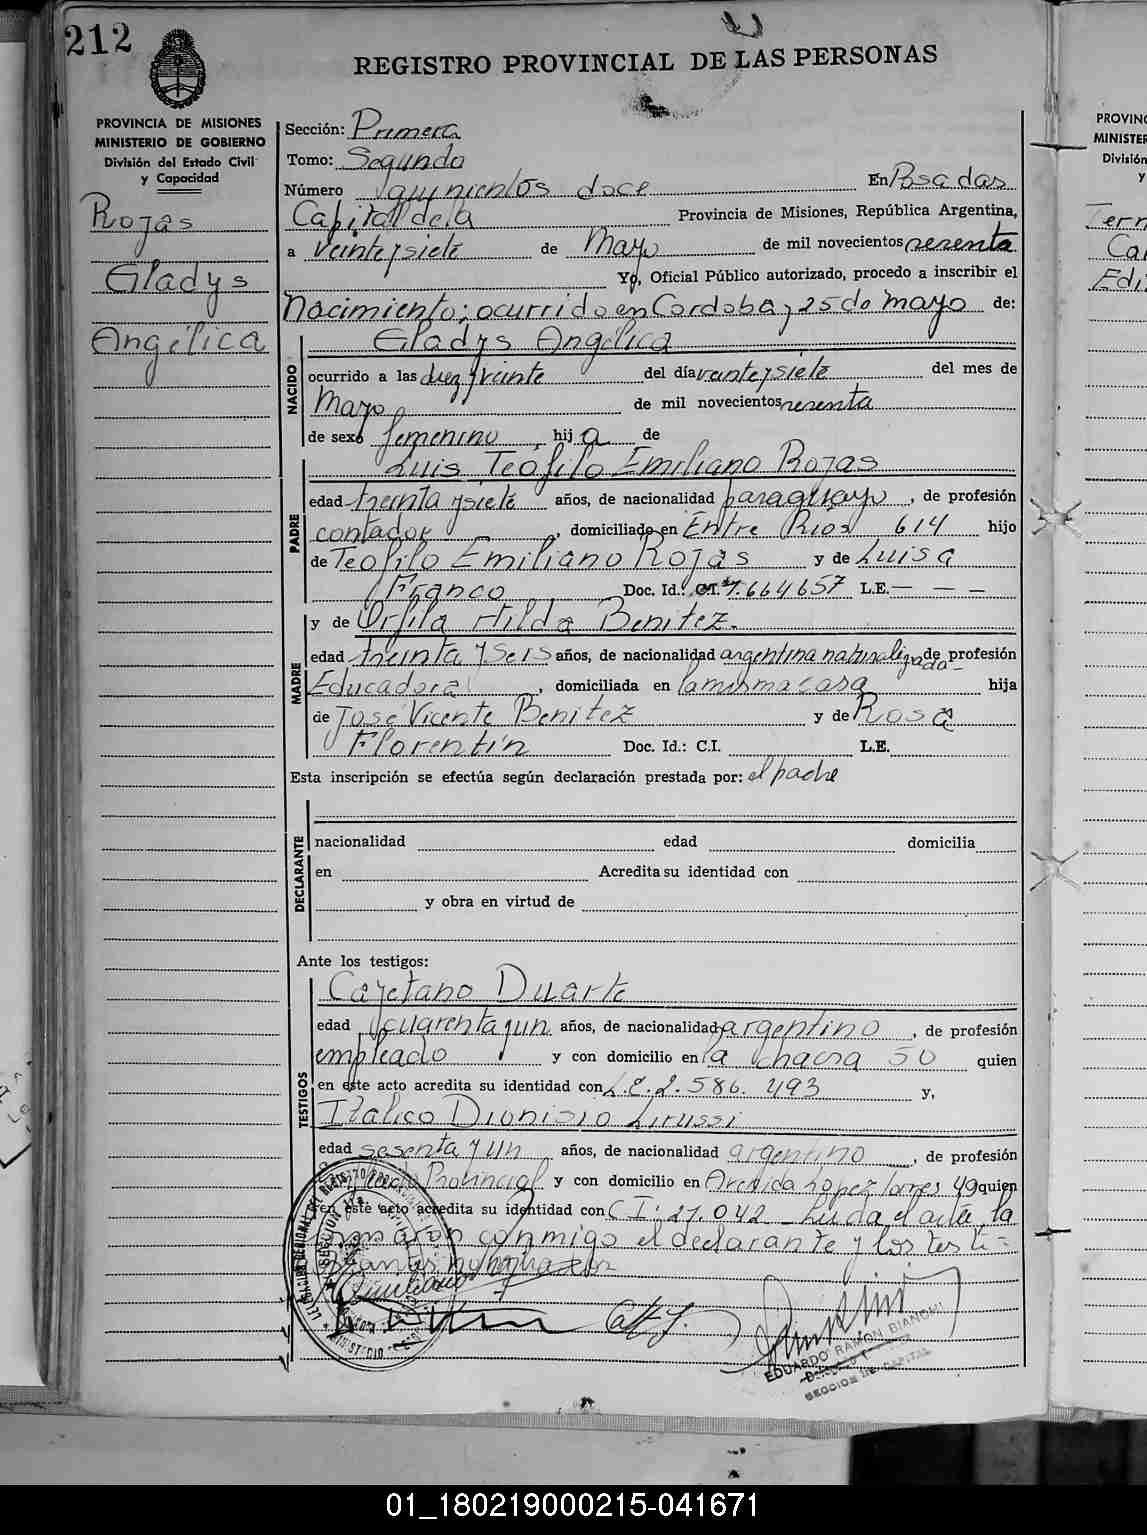 212
REGISTRO PROVINCIAL DE LAS PERSONAS
PROVINCIA DE MISIONES
MINISTERIO DE GOBIERNO
División del Estado Civil
y Capacidad
Rojas
Gladys
Angélica
Sección: Primera
Tomo: Segundo
Número quinientos doce En Posadas
Capital de la Provincia de Misiones, República Argentina,
a veintey siete de Mayo de mil novecientos sesenta
Yo, Oficial Público autorizado, procedo a inscribir el
Nacimiento; ocurrido en Cordoba y 25 de mayo de:
Gladys Angélica
NACIDO
ocurrido a las diez y veinte del día veinte y siete del mes de
Mayo de mil novecientos sesenta
de sexo femenino hij a de
Luis Teófilo Emiliano Rojas
PADRE
edad treinta y siete años, de nacionalidad paraguayo, de profesión
contador, domiciliado en Entre Rios 614 hijo
de Teofilo Emiliano Rojas y de Luisa
Franco Doc. Id.: C.I. 1.664657 L.E. — — —
y de Orfila Hilda Benitez.
MADRE
edad treinta y seis años, de nacionalidad argentina naturalizada de profesión
Educadora, domiciliada en la misma casa hija
de José Vicente Benitez y de Rosa
Florentín Doc. Id.: C.I. L.E.
Esta inscripción se efectúa según declaración prestada por: el padre
DECLARANTE
nacionalidad edad domicilia
en Acredita su identidad con
y obra en virtud de
Ante los testigos:
TESTIGOS
Cayetano Duarte
edad cuarenta y un años, de nacionalidad argentino, de profesión
empleado y con domicilio en la chacra 50 quien
en este acto acredita su identidad con L.E. 2.586.493 y,
Italico Dionisio Lirussi
edad sesenta y un años, de nacionalidad argentino, de profesión
Provincial y con domicilio en Avenida Lopez Torres 49 quien
en este acto acredita su identidad con C I: 27.042 Leida el acta, la
firmaron conmigo el declarante y los testi=
EDUARDO RAMON BIANCHI
SECCION 1a. CAPITAL
PROVINC
MINISTER
División
y
01_180219000215-041671